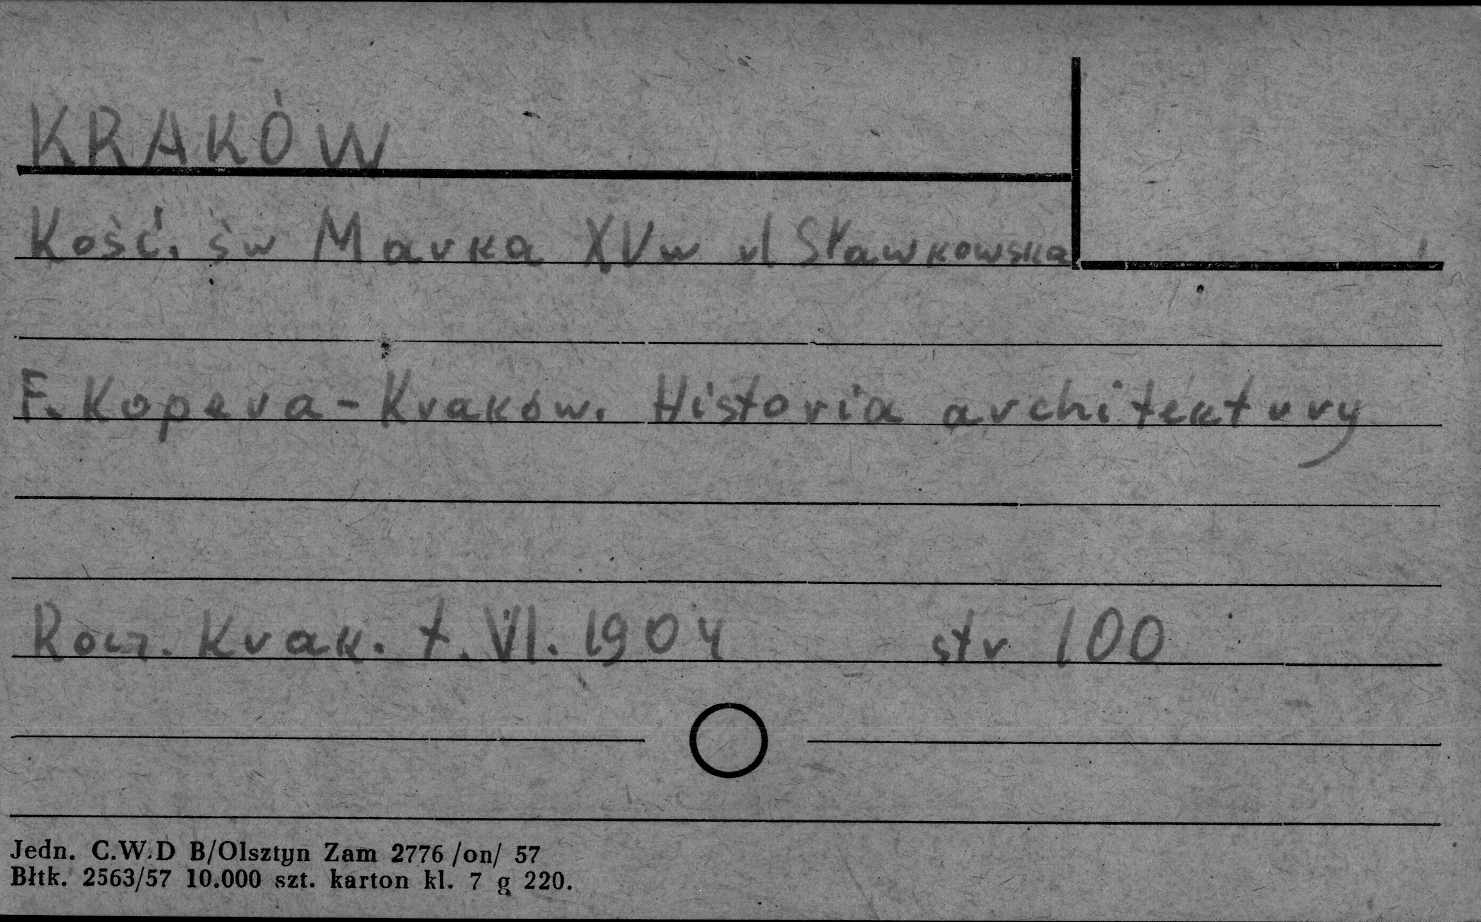 KRAKÓW
Kość. św Marka XVw ul Sławkowska
F. Kopera - Kraków. Historia architektury
Rocz. Krak. t. VI. 1904 str 100
Jedn. C.W.D B/Olsztyn Zam 2776 /on/ 57
Błtk. 2563/57 10.000 szt. karton kl. 7 g 220.